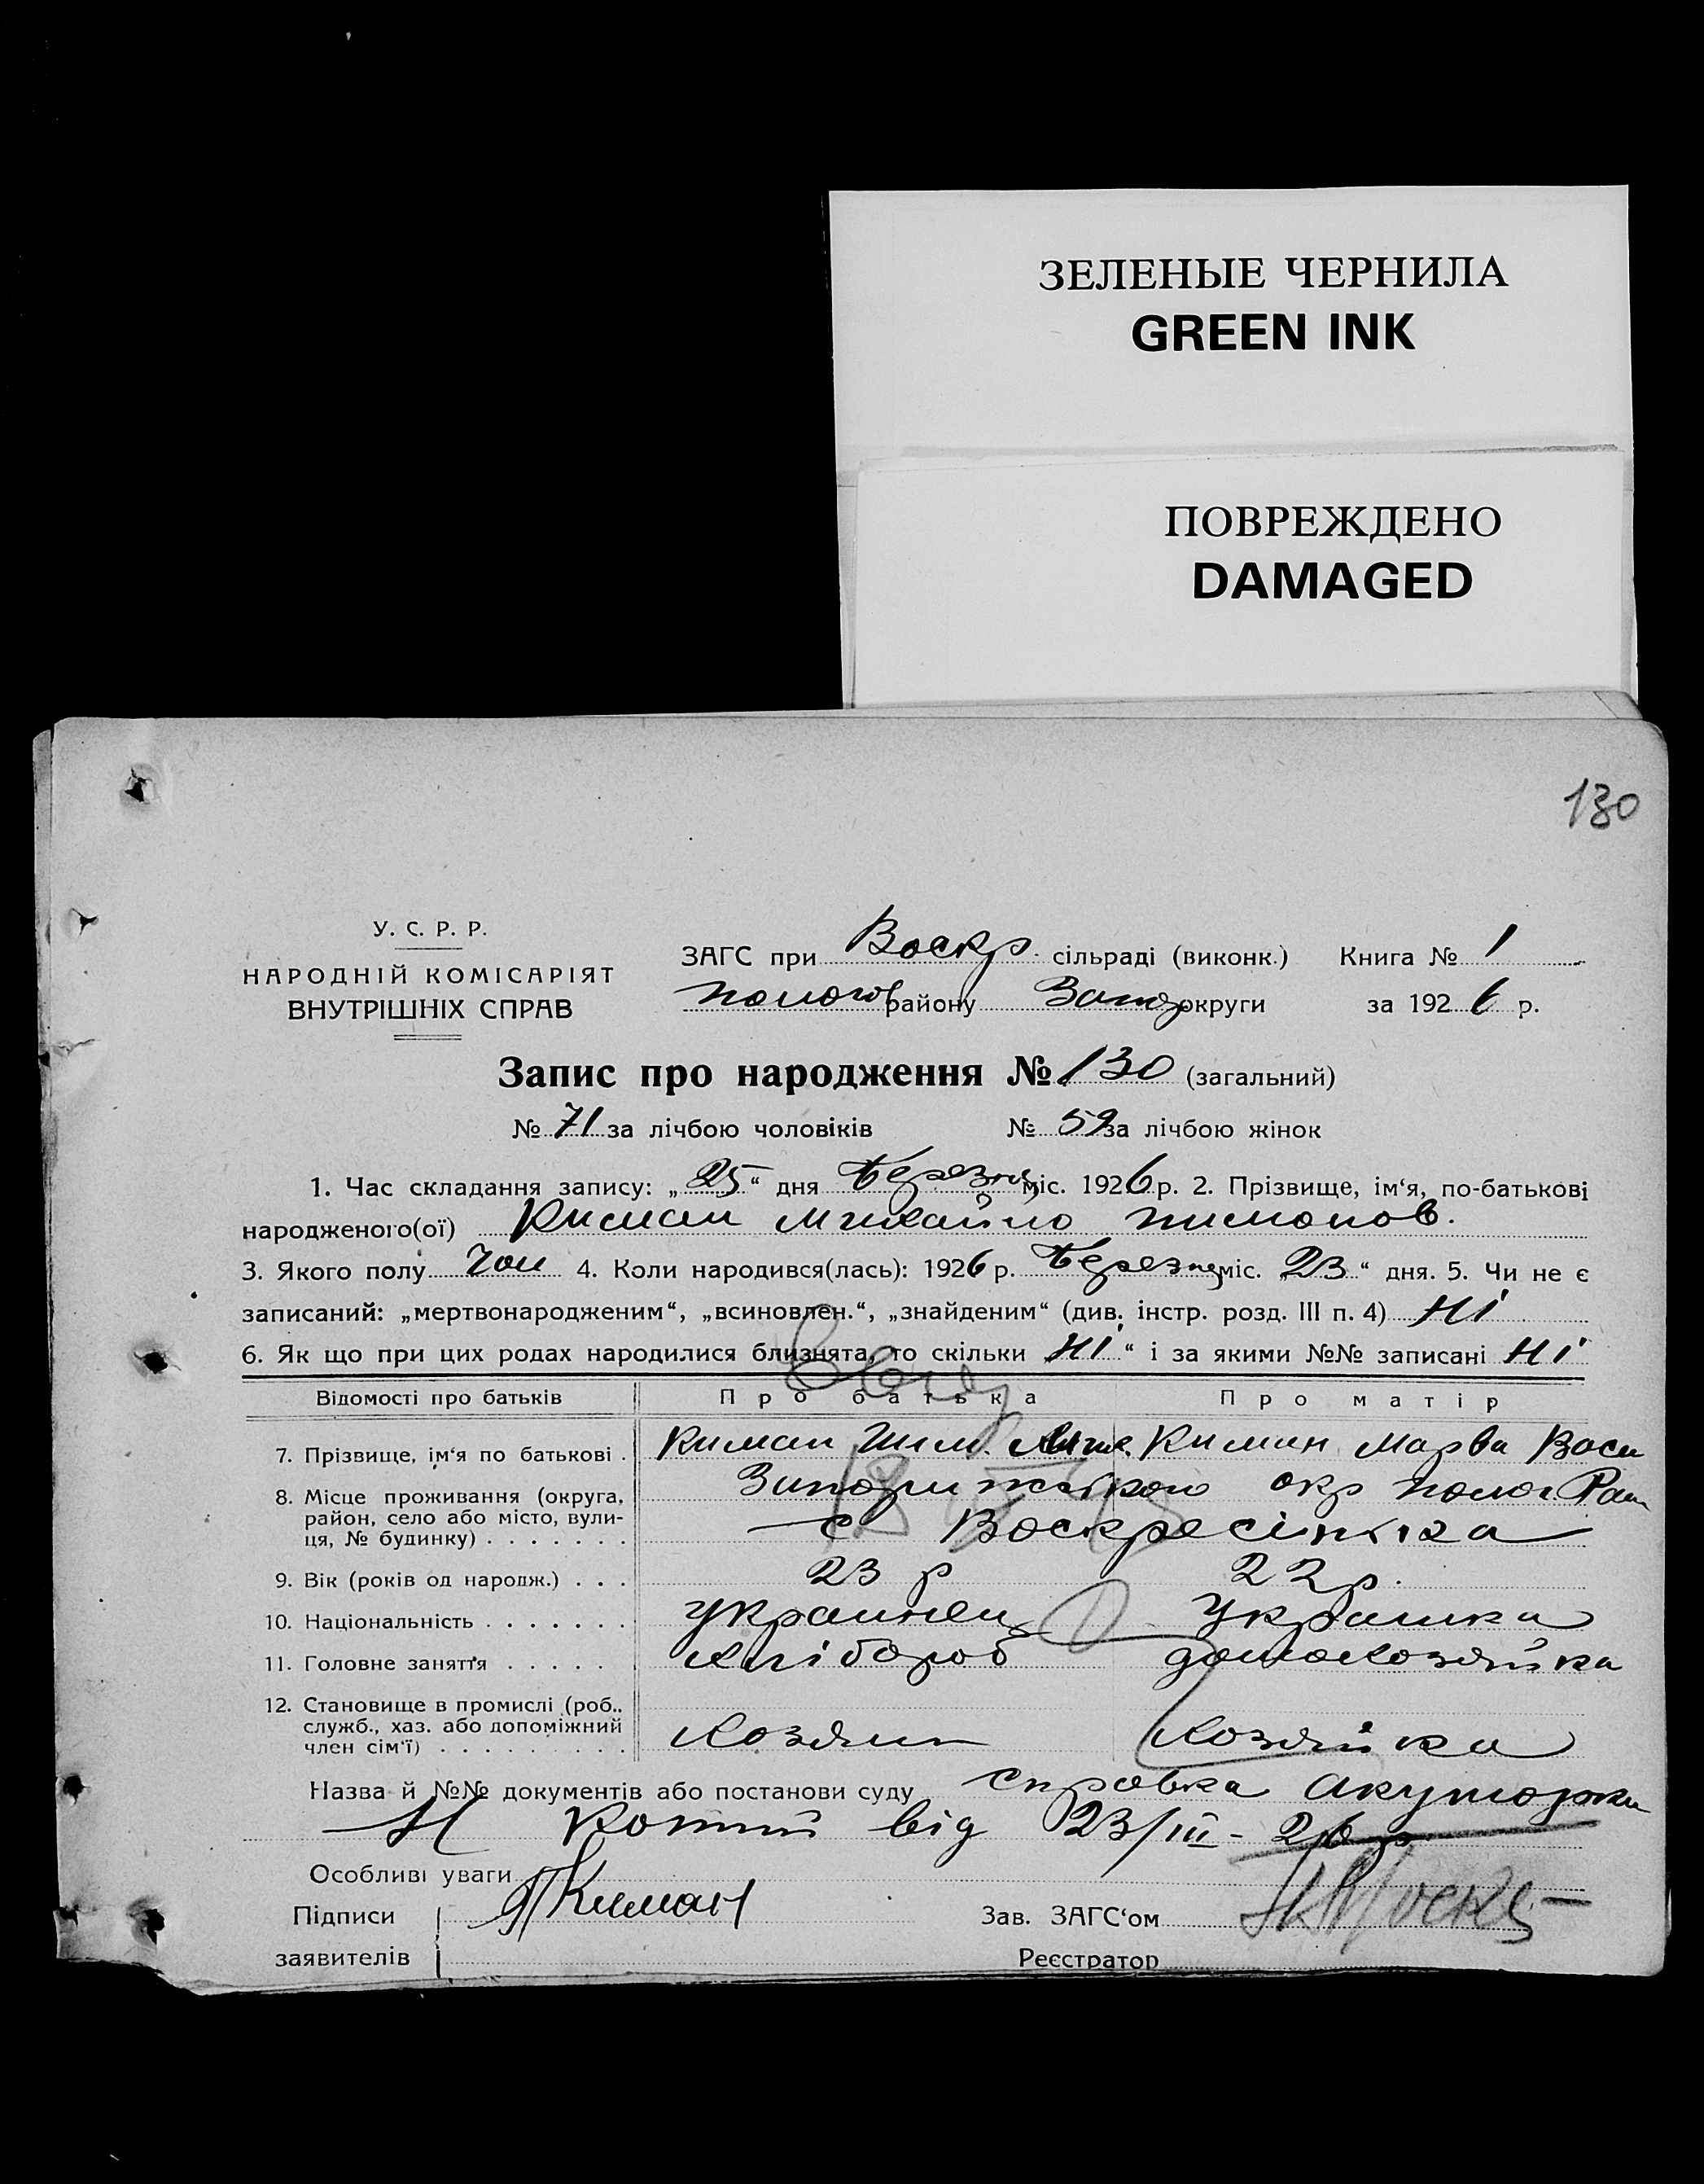 ЗЕЛЕНЫЕ ЧЕРНИЛА
GREEN INK
ПОВРЕЖДЕНО
DAMAGED
130
У. С. Р. Р.
НАРОДНІЙ КОМІСАРІЯТ
ВНУТРІШНІХ СПРАВ
ЗАГС при Воскр. сільраді (виконк.) Книга № 1
Пологов району Запор округи за 1926 р.
Запис про народження № 130 (загальний)
№ 71 за лічбою чоловіків № 59 за лічбою жінок
1. Час складання запису: „25“ дня Березня міс. 1926 р. 2. Прізвище, ім‘я, по-батькові
народженого(ої) Киман Михайло
3. Якого полу Чол 4. Коли народився(лась): 1926 р. Березня міс. 23“ дня. 5. Чи не є
записаний: „мертвонародженим“, „всиновлен.“, „знайденим“ (див. інстр. розд. III п. 4) Ні
6. Як що при цих родах народилися близнята, то скільки Ні“ і за якими №№ записані Ні
Відомості про батьків Про батька Про матір
7. Прізвище, ім‘я по батькові . Киман Киман Марва Васи
8. Місце проживання (округа, Запорижського окр Полог Рай
район, село або місто, вули-
ця, № будинку) . . . . . . . с Воскресінка
9. Вік (років од народж.) . . . 23 р 22 р.
10. Національність . . . . . . . Украинец Украинка
11. Головне заняття . . . . . . Хлібороб домохозяйка
12. Становище в промислі (роб.,
служб., хаз. або допоміжний
член сім‘ї) . . . . . . . . . Хозяин Хозяйка
Назва й №№ документів або постанови суду справка акушорки
від 23/III - 26 р.
Особливі уваги
Підписи Киман Зав. ЗАГС‘ом
заявителів Реєстратор